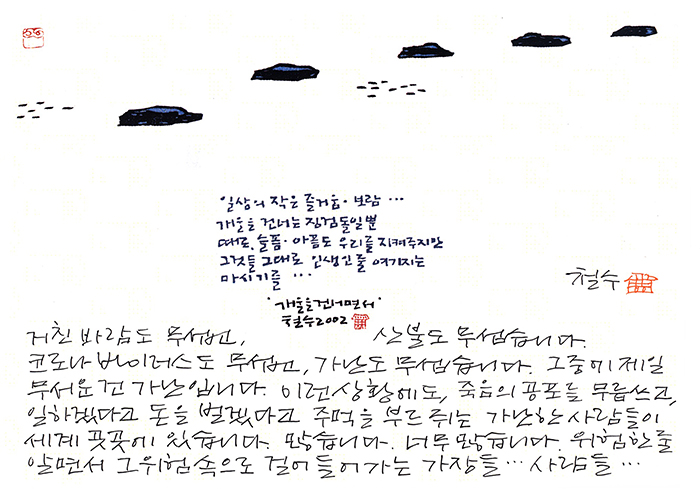 일상의 작은 즐거움·보람 ···
개울을 건너는 징검돌일 뿐
때로, 슬픔·아픔도 우리를 지켜주지만
그것들 그대로 인생인 줄 여기지는
마시기를 ···
'개울을 건너면서'
철수 2002
철수
거친 바람도 무섭고, 산불도 무섭습니다.
코로나 바이러스도 무섭고, 가난도 무섭습니다. 그중에 제일
무서운건 가난입니다. 이런 상황에도, 죽음의 공포를 무릅쓰고,
일하겠다고 돈을 벌겠다고 주먹을 부르쥐는 가난한 사람들이
세계 곳곳에 있습니다. 많습니다. 너무 많습니다. 위험한 줄
알면서 그 위험 속으로 걸어 들어가는 가장들··· 사람들···